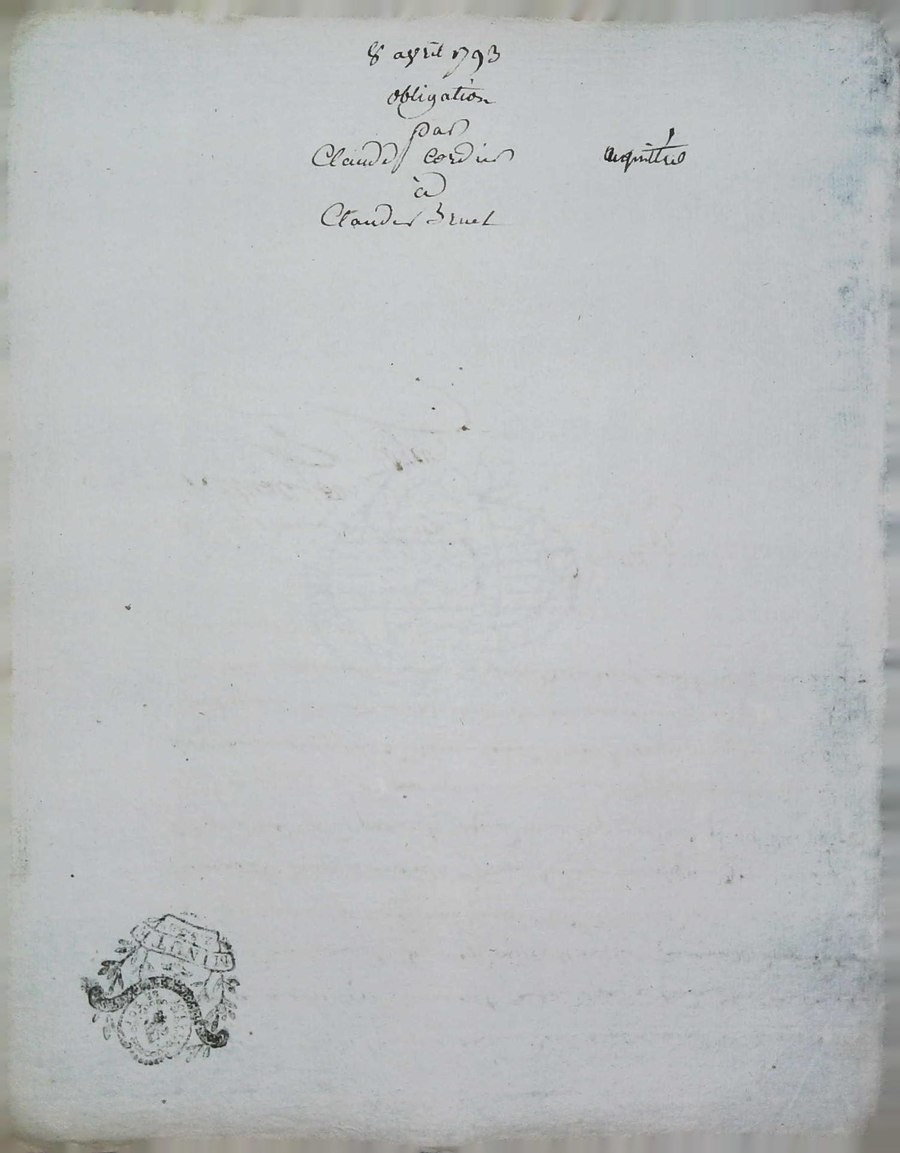 8 avril 1793
obligation
par
Claude Cordier acquittée
à
Claude Bruet